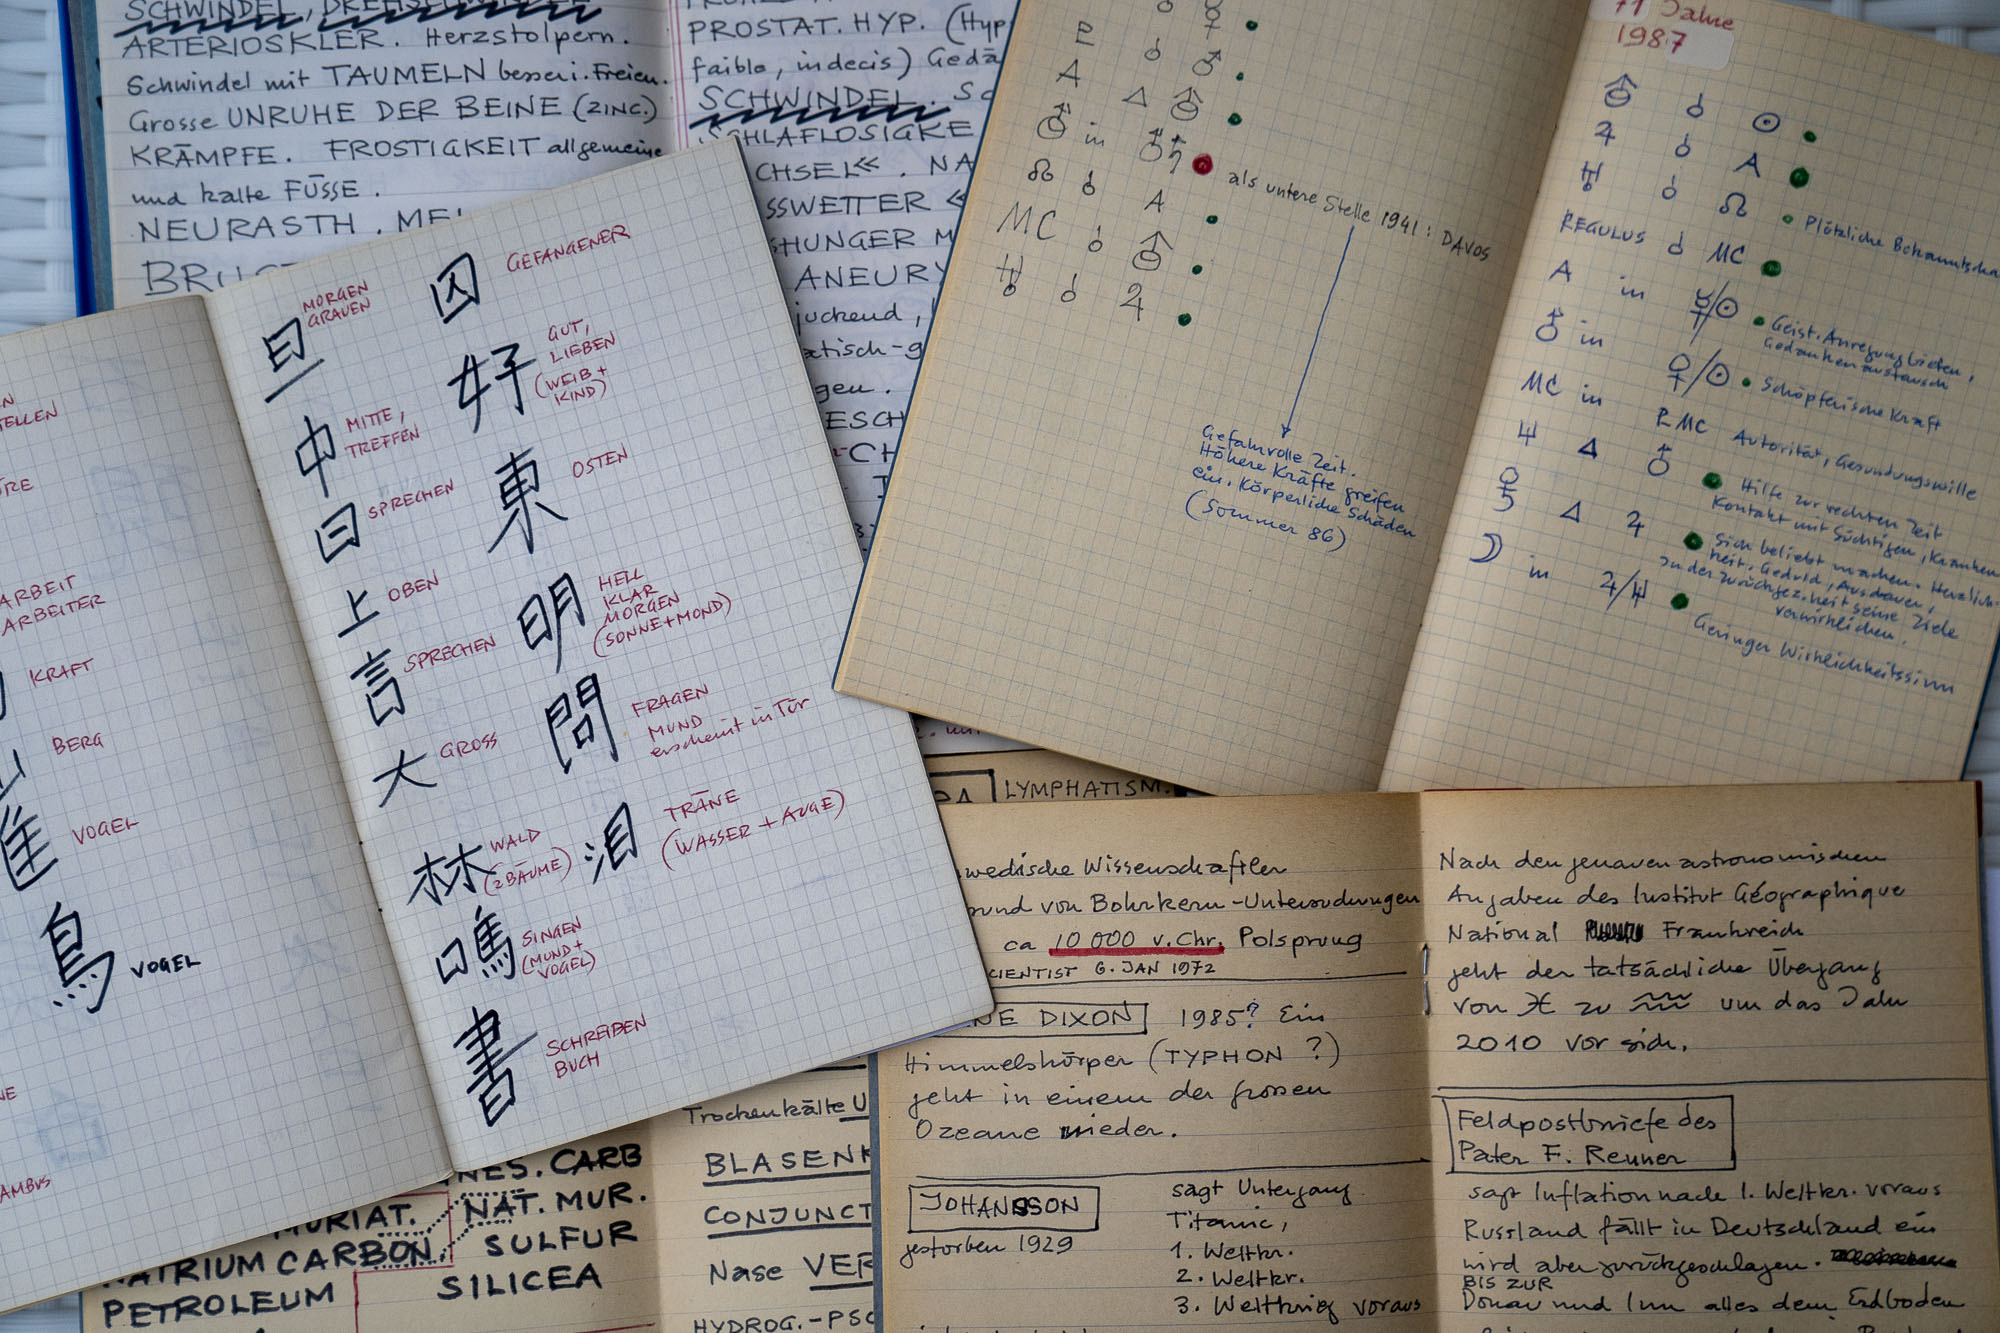 SCHWINDEL, DREHSCHWINDEL
ARTERIOSKLER. Herzstolpern.
Schwindel mit TAUMELN besser i. Freien.
Grosse UNRUHE DER BEINE (ZINC.)
KRÄMPFE. FROSTIGKEIT allgemeine
und kalte FÜSSE.
NEURASTH.
PROSTAT. HYP. (Hyp
faible, indecis) Gedä
SCHWINDEL.
SCHLAFLOSIGKE
CHSEL«. NA
SSWETTER «
SHUNGER M
ANEURY
juckend,
atisch-g
gen.
ESCH
旦 MORGEN
GRAUEN
囚 GEFANGENER
中 MITTE,
TREFFEN
好 GUT,
LIEBEN
(WEIB +
KIND)
曰 SPRECHEN
東 OSTEN
上 OBEN
明 HELL
KLAR
MORGEN
(SONNE+MOND)
言 SPRECHEN
問 FRAGEN
MUND
erscheint in Tür
大 GROSS
林 WALD
(2 BÄUME)
泪 TRÄNE
(WASSER + AUGE)
鳴 SINGEN
(MUND +
VOGEL)
書 SCHREIBEN
BUCH
TELLEN
ARBEIT
ARBEITER
KRAFT
BERG
隹 VOGEL
鳥 VOGEL
AMBUS
♇ ☌ ♂
A △
in
☊ ☌ A
MC ☌
♅ ☌ ♃
als untere Stelle 1941: DAVOS
Gefahrvolle Zeit.
Höhere Kräfte greifen
ein. Körperliche Schäden
(Sommer 86)
71 Jahre
1987
☌ ☉
♃ ☌ A
♅ ☌ ☊ Plötzliche Bekanntscha
REGULUS ☌ MC
A in ☿/☉ Geist. Anregung bieten,
Gedankenaustausch
in ♀/☉ Schöpferische Kraft
MC in R MC Autorität, Gesundungswille
♆ △ Hilfe zur rechten Zeit
Kontakt mit Süchtigen, Kranken
△ ♃ Sich beliebt machen. Herzlich-
keit, Geduld, Ausdauer,
In der Zurückgez.heit seine Ziele
verwirklichen.
☽ in ♃/♆ Geringer Wirklichkeitssinn
LYMPHATISM.
wedische Wissenschaftler
rund von Bohrkern-Untersuchungen
ca 10 000 v. Chr. Polsprung
CIENTIST 6. JAN 1972
NE DIXON 1985? Ein
Himmelskörper (TYPHON ?)
geht in einem der grossen
Ozeane nieder.
JOHANSSON
gestorben 1929
sagt Untergang
Titanic,
1. Weltkr.
2. Weltkr.
3. Weltkrieg voraus
Nach den genauen astronomischen
Angaben des Institut Géographique
National Frankreich
geht der tatsächliche Übergang
von ♓ zu ♒ um das Jahr
2010 vor sich.
Feldpostbriefe des
Pater F. Renner
sagt Inflation nach 1. Weltkr. voraus
Russland fällt in Deutschland ein
wird aber zurückgeschlagen.
BIS ZUR
Donau und Inn alles dem Erdboden
NES. CARB
MURIAT. NAT. MUR.
NATRIUM CARBON. SULFUR
PETROLEUM SILICEA
Trockenkälte U
BLASEN
CONJUNCT
Nase VER
HYDROG.-